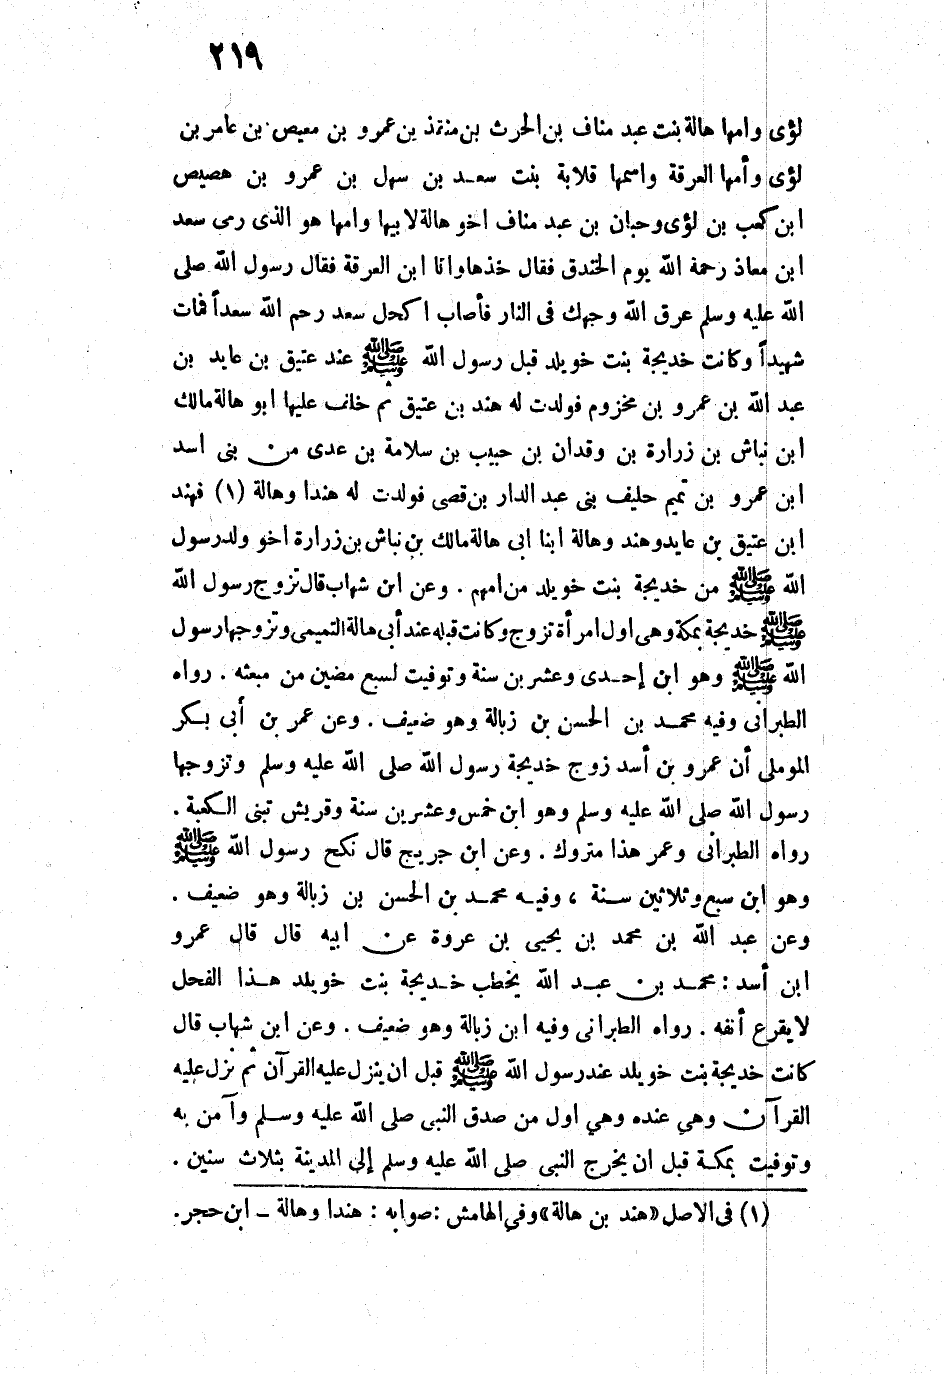 ٢١٩
لؤى وامها هالة بنت عبد مناف بن الحرث بن منقذ بن عمرو بن معيص بن عامر بن
لؤى وأمها العرقة واسمها قلابة بنت سعد بن سهل بن عمرو بن هصيص
ابن كعب بن لؤى وحبان بن عبد مناف اخو هالة لابيها وامها هو الذى رمى سعد
ابن معاذ رحمة الله يوم الخندق فقال خذها وانا ابن العرقة فقال رسول الله صلى
الله عليه وسلم عرق الله وجهك فى النار فأصاب اكحل سعد رحم الله سعداً فمات
شهيداً وكانت خديجة بنت خويلد قبل رسول الله ﷺ عند عتيق بن عايد بن
عبد الله بن عمرو بن مخزوم فولدت له هند بن عتيق ثم خلف عليها ابو هالة مالك
ابن نباش بن زرارة بن وقدان بن حبيب بن سلامة بن عدى من بنى اسد
ابن عمرو بن تميم حليف بنى عبد الدار بن قصى فولدت له هندا وهالة (١) فهند
ابن عتيق بن عايد وهند وهالة ابنا ابى هالة مالك بن نباش بن زرارة اخو ولد رسول
الله ﷺ من خديجة بنت خويلد من امهم . وعن ابن شهاب قال تزوج رسول الله
ﷺ خديجة بمكة وهى اول امرأة تزوج وكانت قبله عند أبى هالة التميمى وتزوجها رسول
الله ﷺ وهو ابن إحدى وعشرين سنة وتوفيت لسبع مضين من مبعثه . رواه
الطبرانى وفيه محمد بن الحسن بن زبالة وهو ضعيف . وعن عمر بن أبى بكر
الموملى أن عمرو بن أسد زوج خديجة رسول الله صلى الله عليه وسلم وتزوجها
رسول الله صلى الله عليه وسلم وهو ابن خمس وعشرين سنة وقريش تبنى الكعبة .
رواه الطبرانى وعمر هذا متروك . وعن ابن جريج قال نكح رسول الله ﷺ
وهو ابن سبع وثلاثين سنة ، وفيه محمد بن الحسن بن زبالة وهو ضعيف .
وعن عبد الله بن محمد بن يحيى بن عروة عن ابيه قال قال عمرو
ابن أسد : محمد بن عبد الله يخطب خديجة بنت خويلد هذا الفحل
لا يقرع أنفه . رواه الطبرانى وفيه ابن زبالة وهو ضعيف . وعن ابن شهاب قال
كانت خديجة بنت خويلد عند رسول الله ﷺ قبل ان ينزل عليه القرآن ثم نزل عليه
القرآن وهي عنده وهي اول من صدق النبى صلى الله عليه وسلم وآمن به
وتوفيت بمكة قبل ان يخرج النبى صلى الله عليه وسلم إلى المدينة بثلاث سنين .
(١) فى الاصل «هند بن هالة» وفي الهامش : صوابه : هندا وهالة ـ ابن حجر.